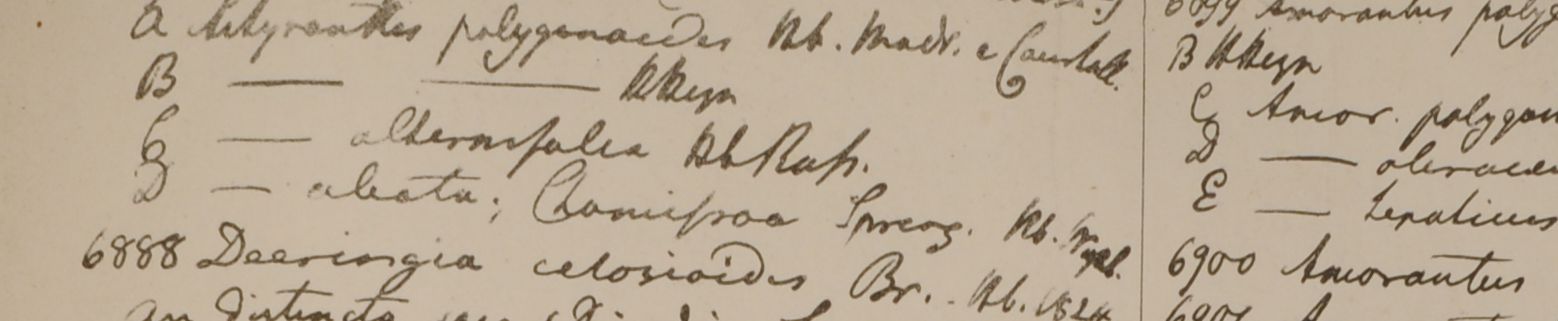 A Achyranthes polygonoides Hb. Madr. e
B — — H Heyn
C — alternifolia Hb Russ.
D — alata; Chamissoa Spreng. Hb.
6888 Deeringia celosioides Br. Hb. 1824
An distincta
6899 Amarantus polyg
B H Heyn
C Amar. polygon
D — olerace
E — hepaticus
6900 Amarantus